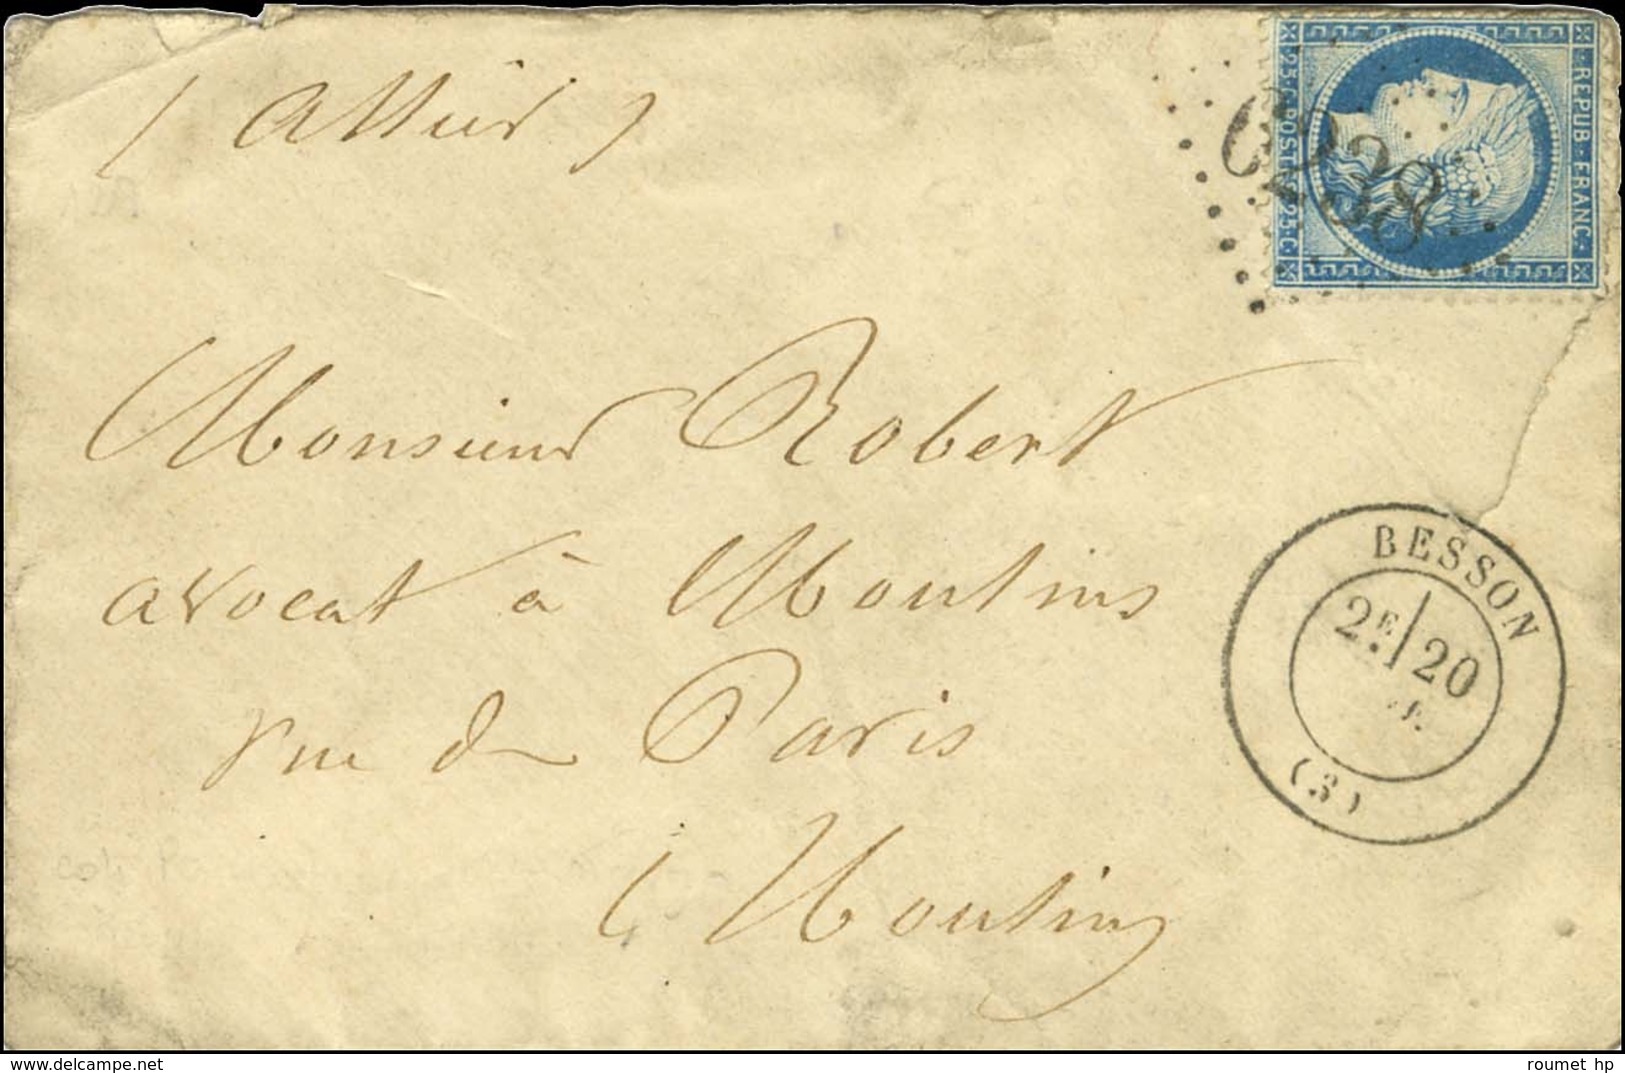 (Allier)
REPUB·FRANC·
25·C·POSTES·25·C
6238
Monsieur Robert
avocat à Moulins
rue de Paris
Moulins
BESSON
2E/20
(3)
roumet hp